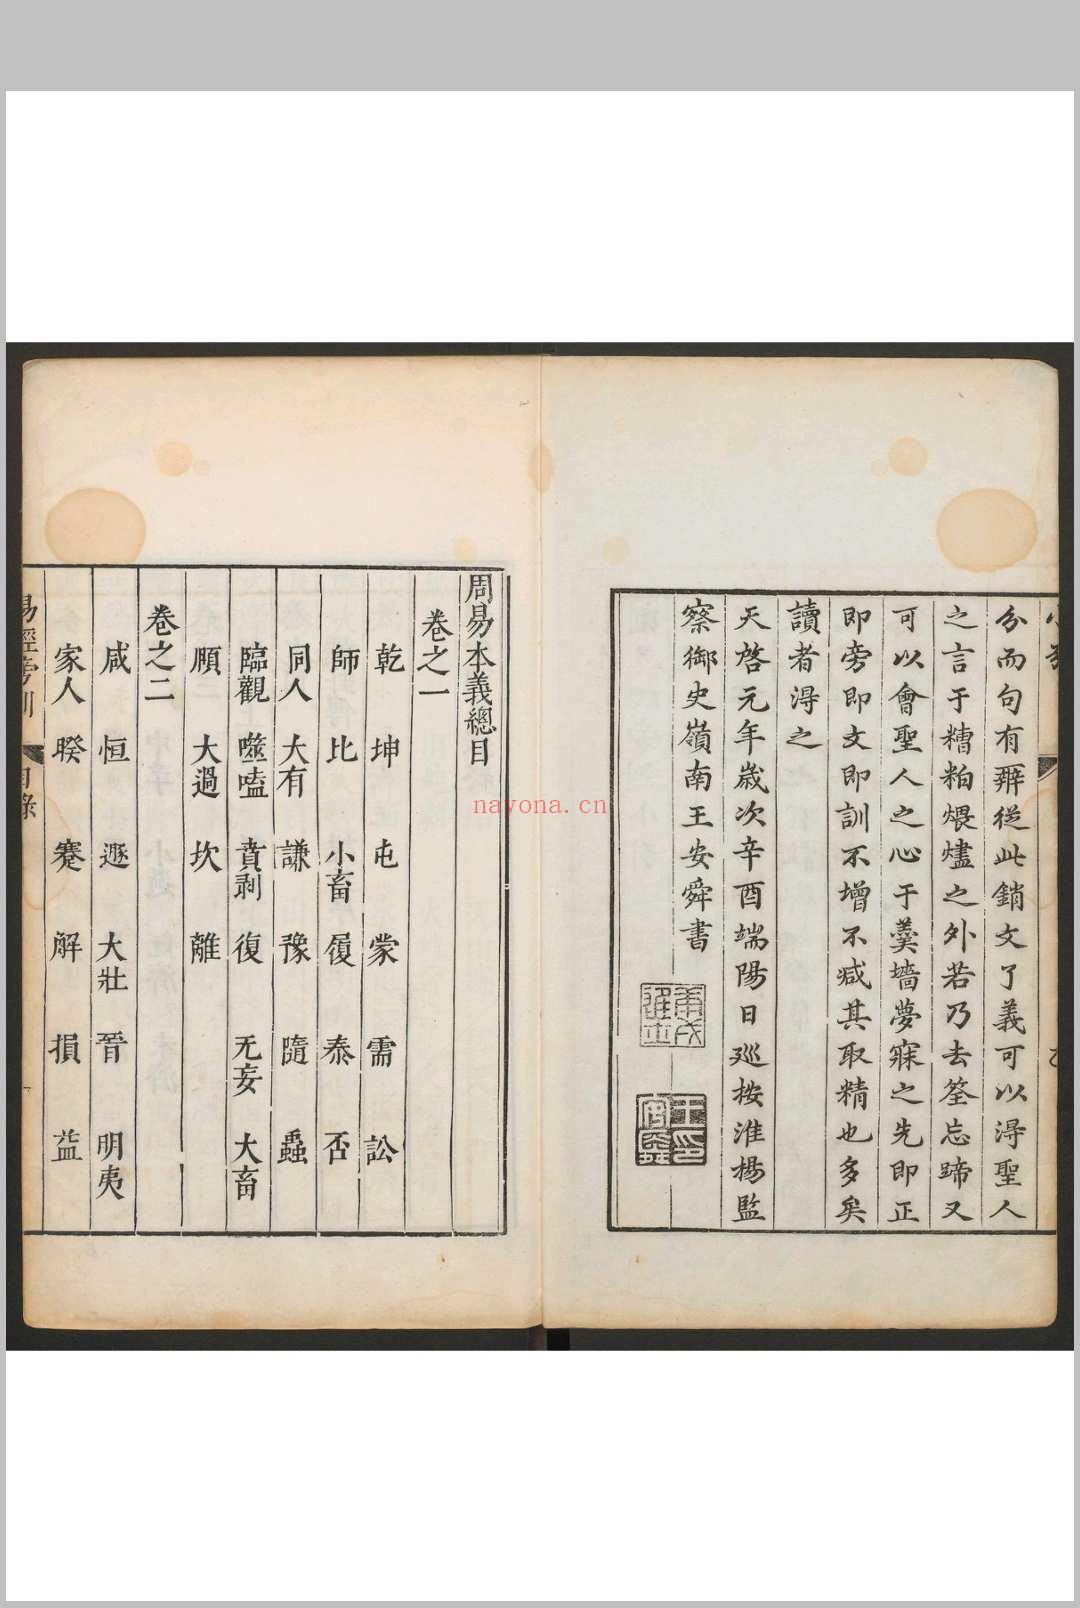 分而句有辨從此銷文了義可以得聖人
之言于糟粕煨燼之外若乃去筌忘蹄又
可以會聖人之心于羹墻夢寐之先即正
即旁即文即訓不增不減其取精也多矣
讀者得之
天啓元年歲次辛酉端陽日廵按淮揚監
察御史嶺南王安舜書
周易本義總目
卷之一
乾 坤 屯 蒙 需 訟
師 比 小畜 履 泰 否
同人 大有 謙 豫 隨 蠱
臨 觀 噬嗑 賁 剥 復 无妄 大畜
頤 大過 坎 離
卷之二
咸 恒 遯 大壯 晉 明夷
家人 暌 蹇 解 損 益
易經旁訓 目錄
nayona.cn